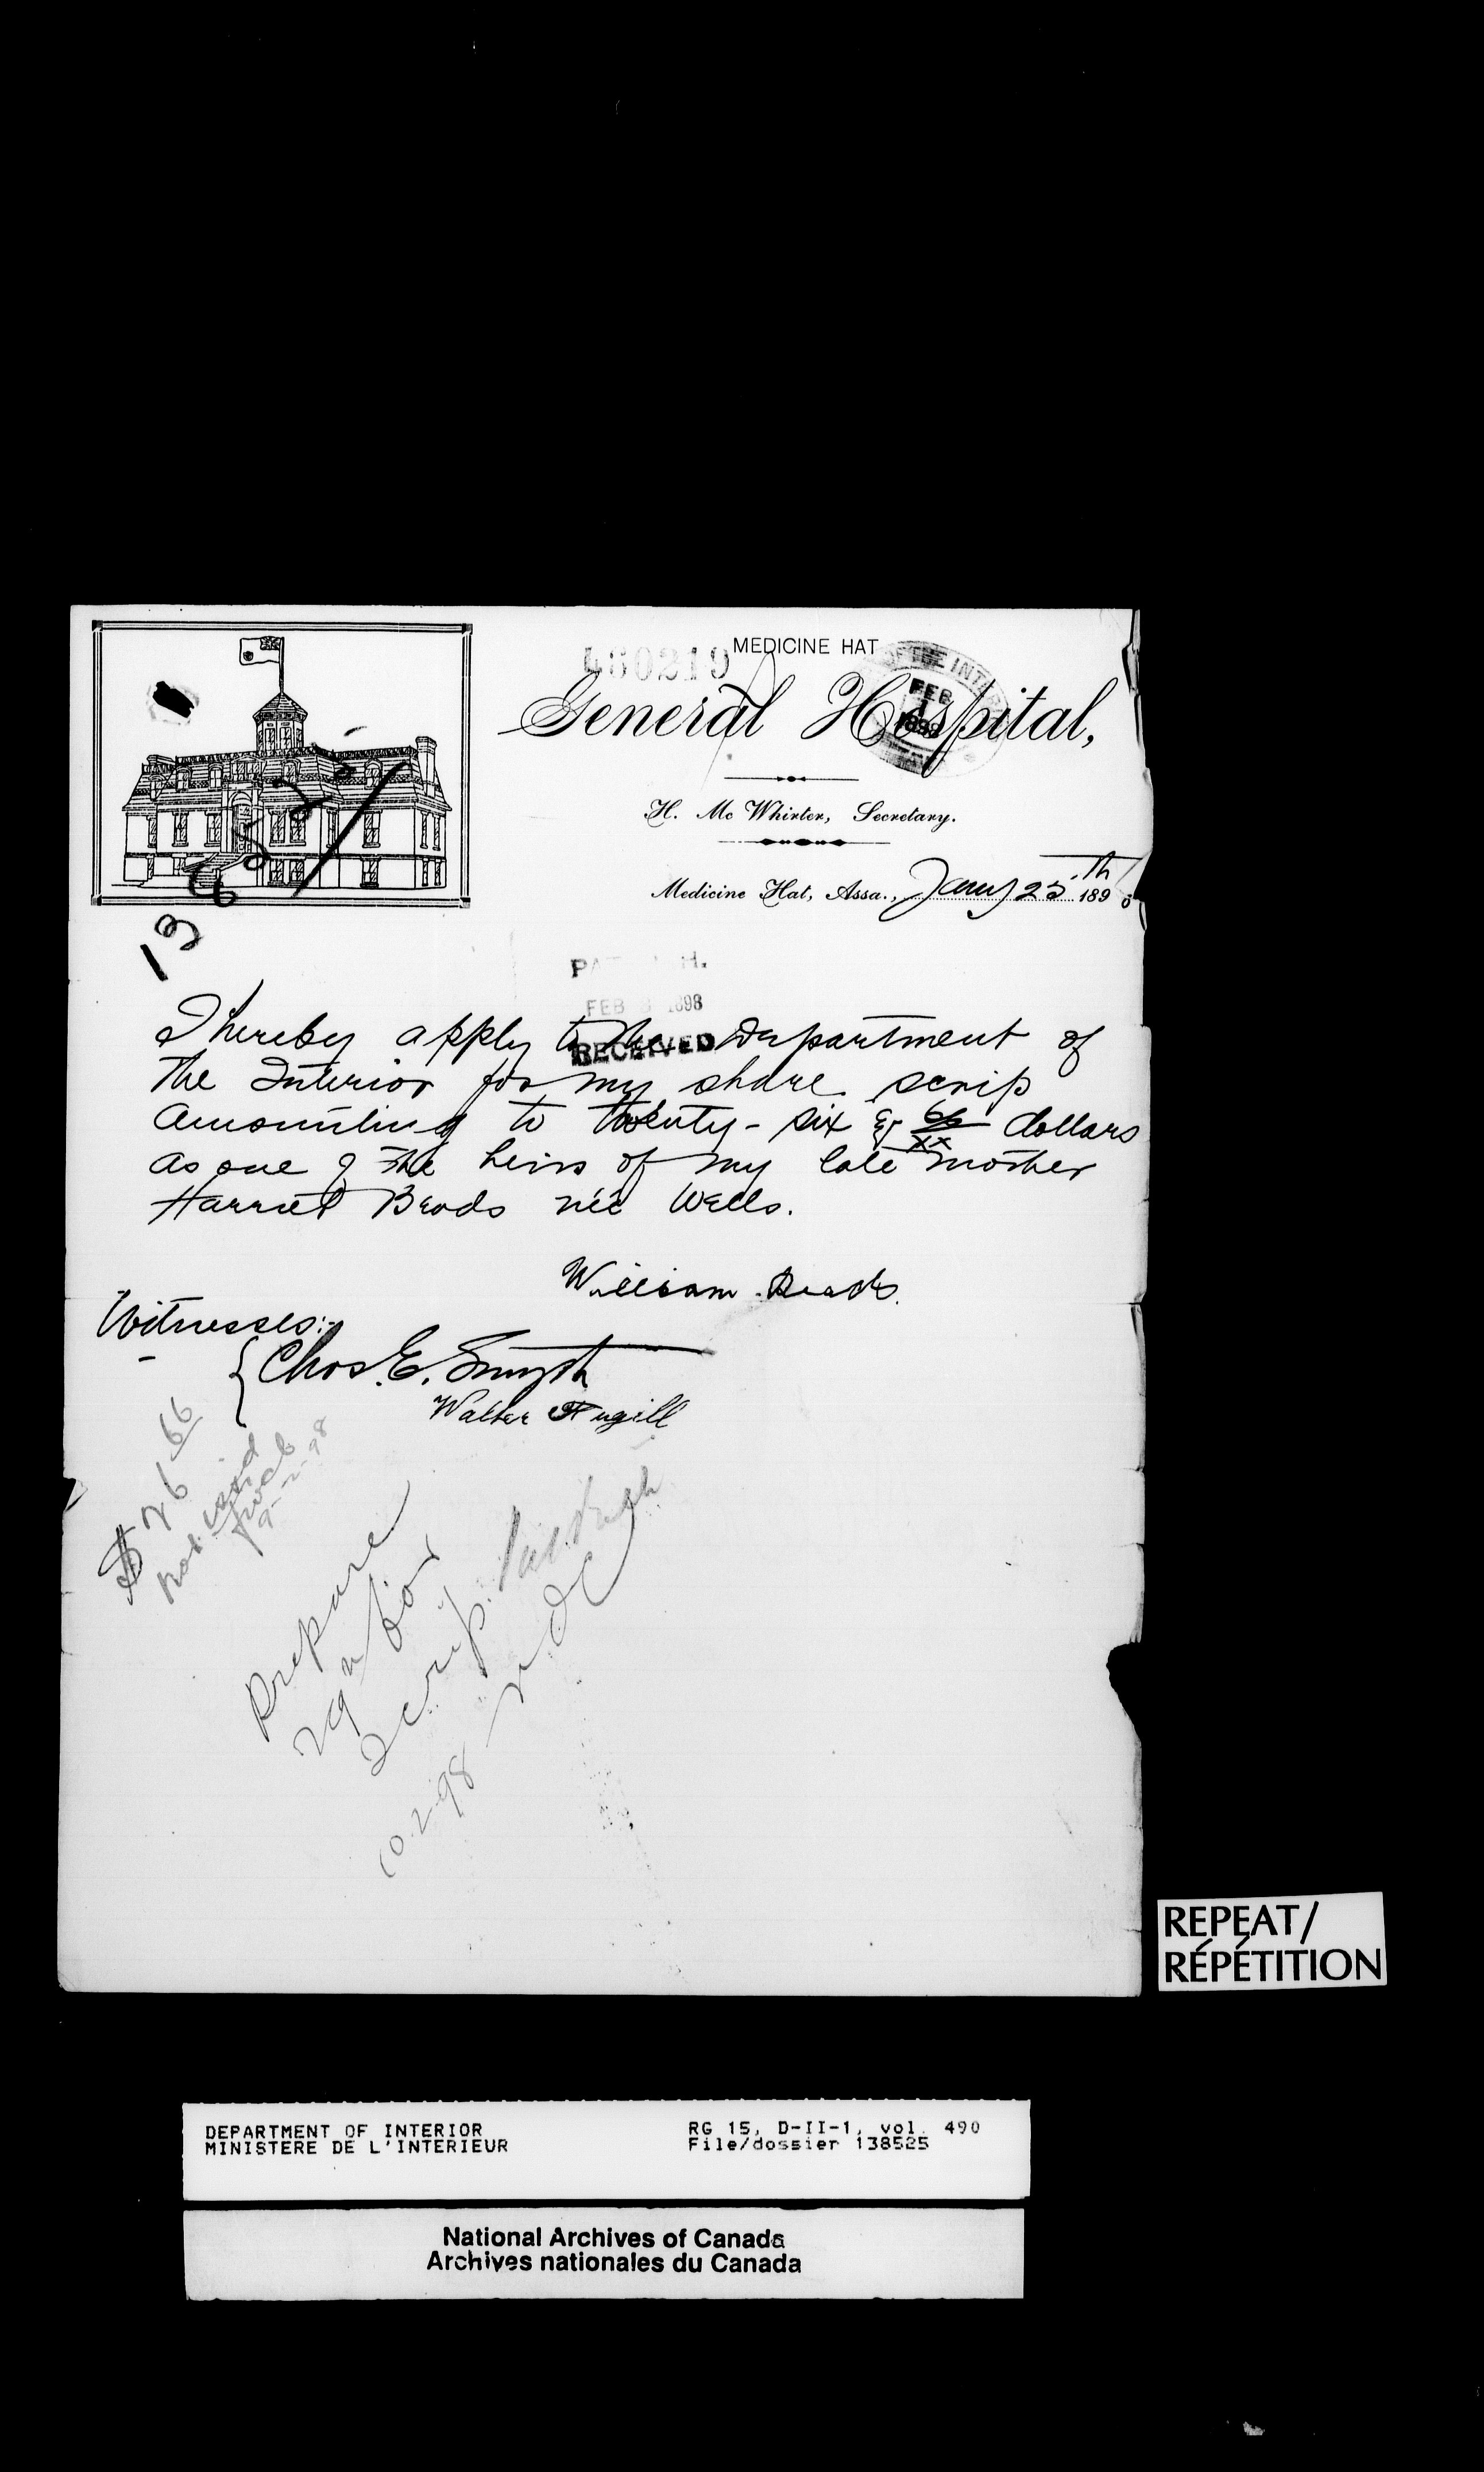 460219
MEDICINE HAT
General Hospital,
OF THE INTERIOR
FEB
1
1898
H. Mc Whirter, Secretary.
Medicine Hat, Assa., Jany 25th 1898
138525
FEB 1898
RECEIVED
I hereby apply to the Department of
the Interior for my share scrip
amounting to twenty-six & 66/xx dollars
as one of the heirs of my late mother
Harriet Beads née Wells.
William Beads.
Witnesses:-
Chas. E. Smyth
Walter Fugill
$26 66
not used
9-2-98
Prepare
scrip
10.2.98
REPEAT/
RÉPÉTITION
DEPARTMENT OF INTERIOR
MINISTERE DE L'INTERIEUR
RG 15, D-II-1, vol. 490
File/dossier 138525
National Archives of Canada
Archives nationales du Canada